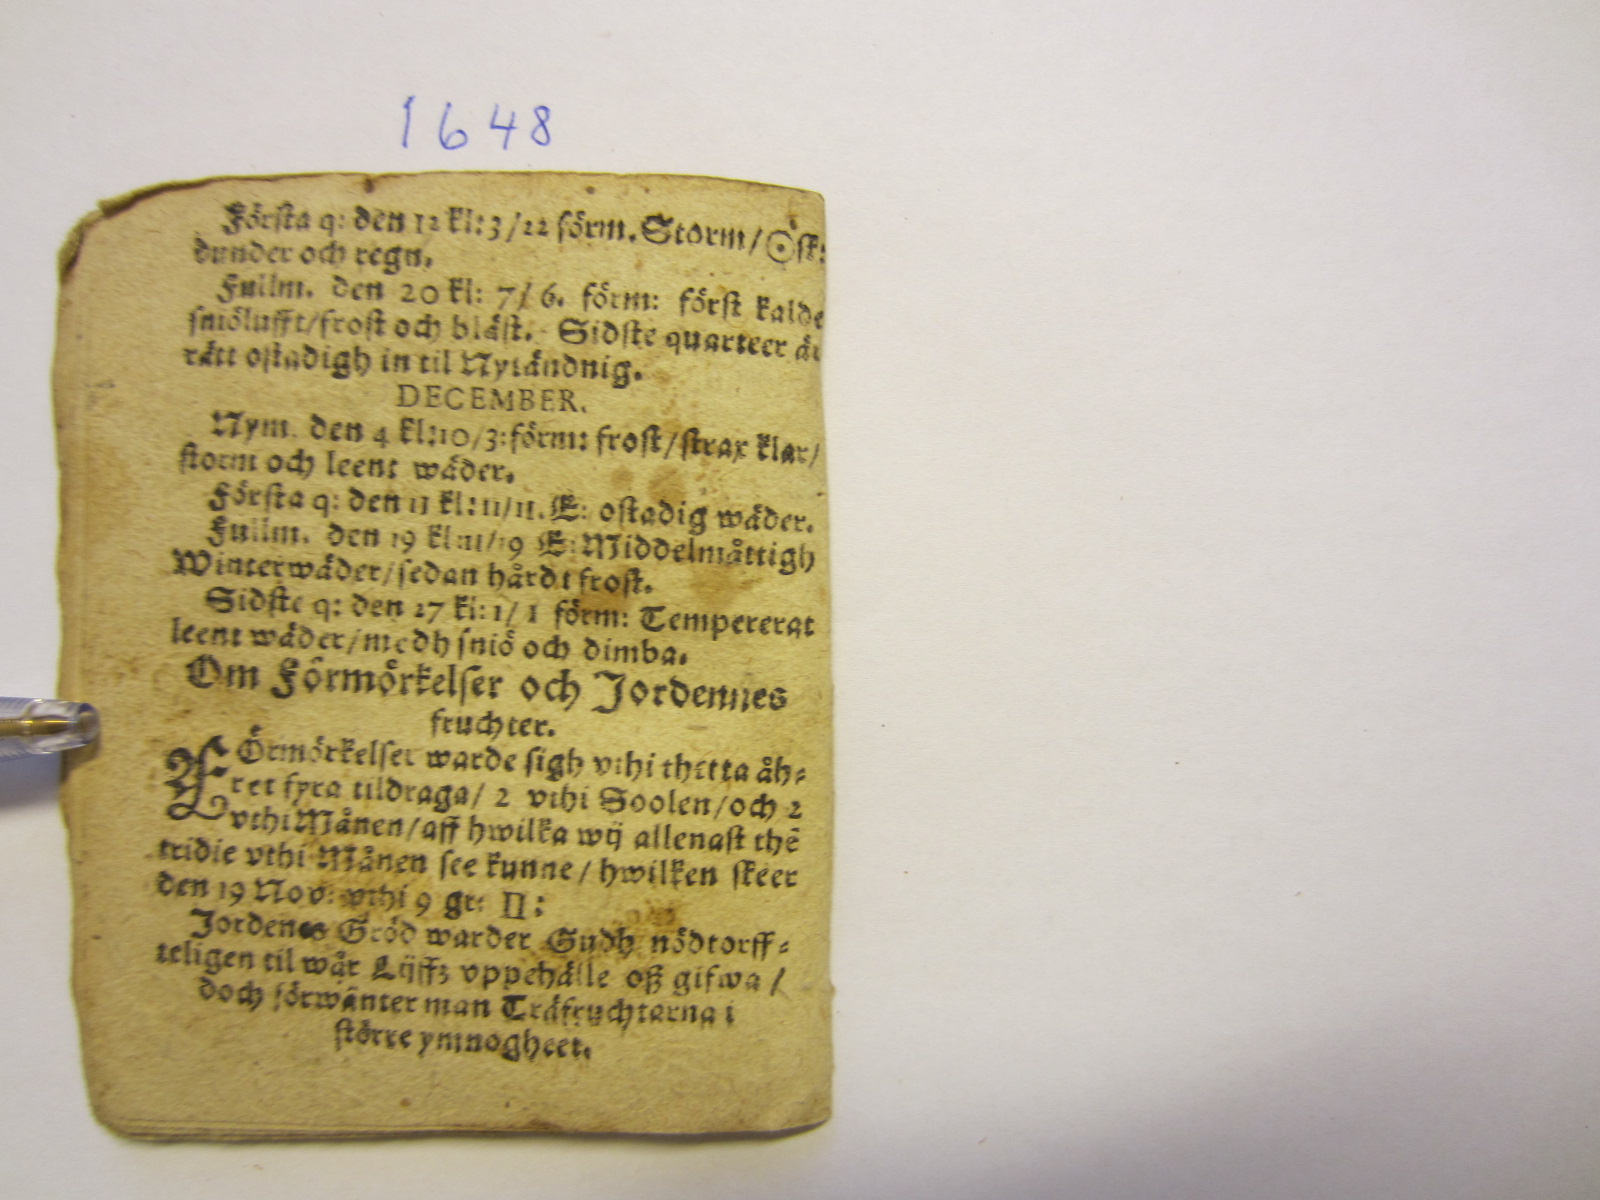 1648
Första q: den 12 kl: 3/22 förm. Storm/ ☉sk:
dunder och regn.
Fullm. den 20 kl: 7/6. förm: först kalde
sniölufft/frost och bläst. Sidste quarteer är
rätt ostadigh in til Nytändnig.
DECEMBER.
Nym. den 4 kl:10/3:förm: frost/strax klar/
storm och leent wäder.
Första q: den 11 kl:11/11. E: ostadig wäder.
Fullm. den 19 kl:11/19 E:Middelmåttigh
Winterwäder/sedan hårdt frost.
Sidste q: den 27 kl:1/1 förm: Tempererat
leent wäder/medh sniö och dimba.
Om Förmörkelser och Jordennes
fruchter.
FÖrmörkelser warde sigh vthi thetta åh-
ret fyra tildraga/ 2 vthi Soolen/och 2
vthi Månen/aff hwilka wij allenast thē
tridie vthi Månen see kunne/hwilken skeer
den 19 Nov: vthi 9 gr: ♊:
Jordenes Gröd warder Gudh nödtorff-
teligen til wår Lijffz vppehälle oß gifwa/
doch förwänter man Träfruchtarna i
större ymnogheet.